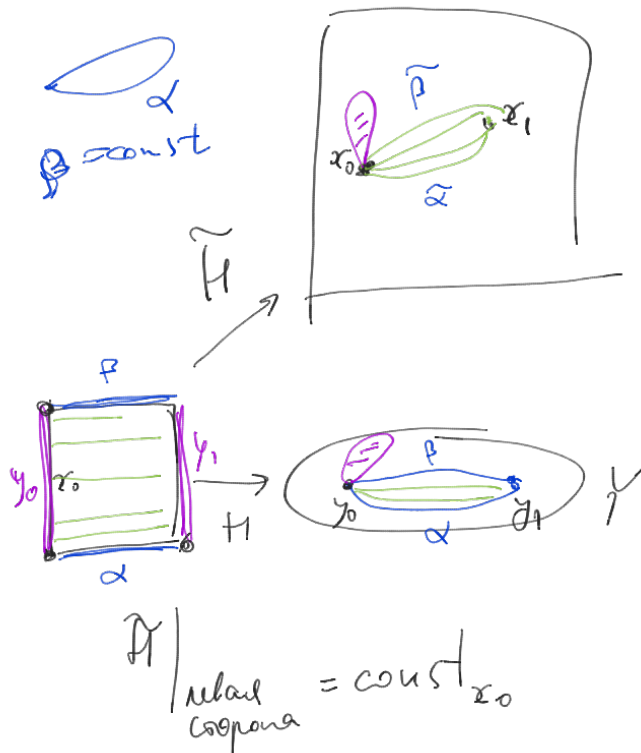 α
β = const
β̃
x₀
x₁
α̃
H̃
β
y₀
x₀
y₁
H
α
β
y₀
y₁
α
Y
H̃|левая сторона = const_x₀